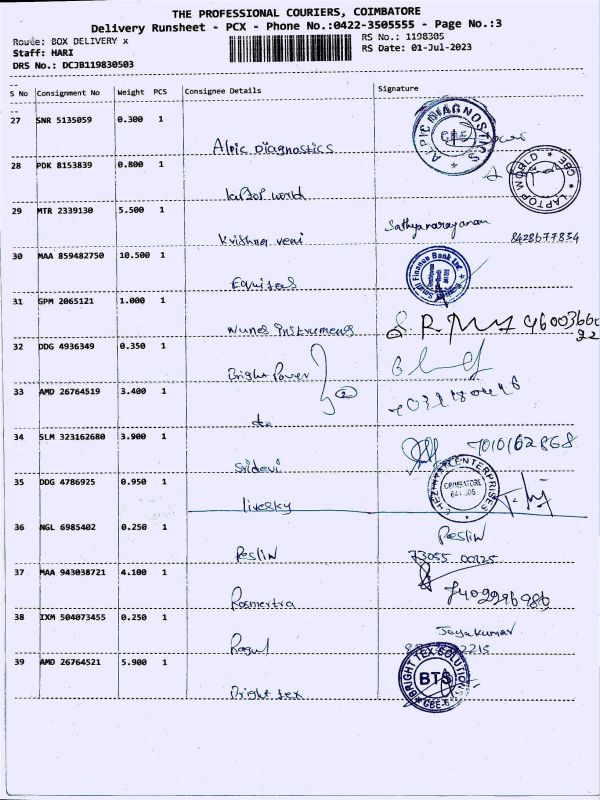 THE PROFESSIONAL COURIERS, COIMBATORE
Delivery Runsheet - PCX - Phone No.:0422-3505555 - Page No.:3
Route: BOX DELIVERY x
RS No.: 1198305
Staff: HARI
RS Date: 01-Jul-2023
DRS No.: DCJB119830503
S No Consignment No Weight PCS Consignee Details Signature
27 SNR 5135059 0.300 1 Alpic Diagnostics ALPIC DIAGNOSTICS CBE
28 PDK 8153839 0.800 1 laptop world LAPTOP WORLD CBE
29 MTR 2339130 5.500 1 Krishna veni Sathyanarayanan 8428677834
30 MAA 859482750 10.500 1 Equitas Small Finance Bank Ltd
31 GPM 2065121 1.000 1 Wunes Instruments
32 DDG 4936349 0.350 1 Bright Power
33 AMD 26764519 3.400 1 do 2
34 SLM 323162680 3.900 1 Sridevi 7010162868
35 DDG 4786925 0.950 1 livesky ENTERPRISES COIMBATORE
36 NGL 6985402 0.250 1 Reslin Reslin
73055 00125
37 MAA 943038721 4.100 1 Rosmertra
38 IXM 504073455 0.250 1 Ragul Jayakumar
39 AMD 26764521 5.900 1 Bright tex BRIGHT TEX SOLUTION BTS CBE-6